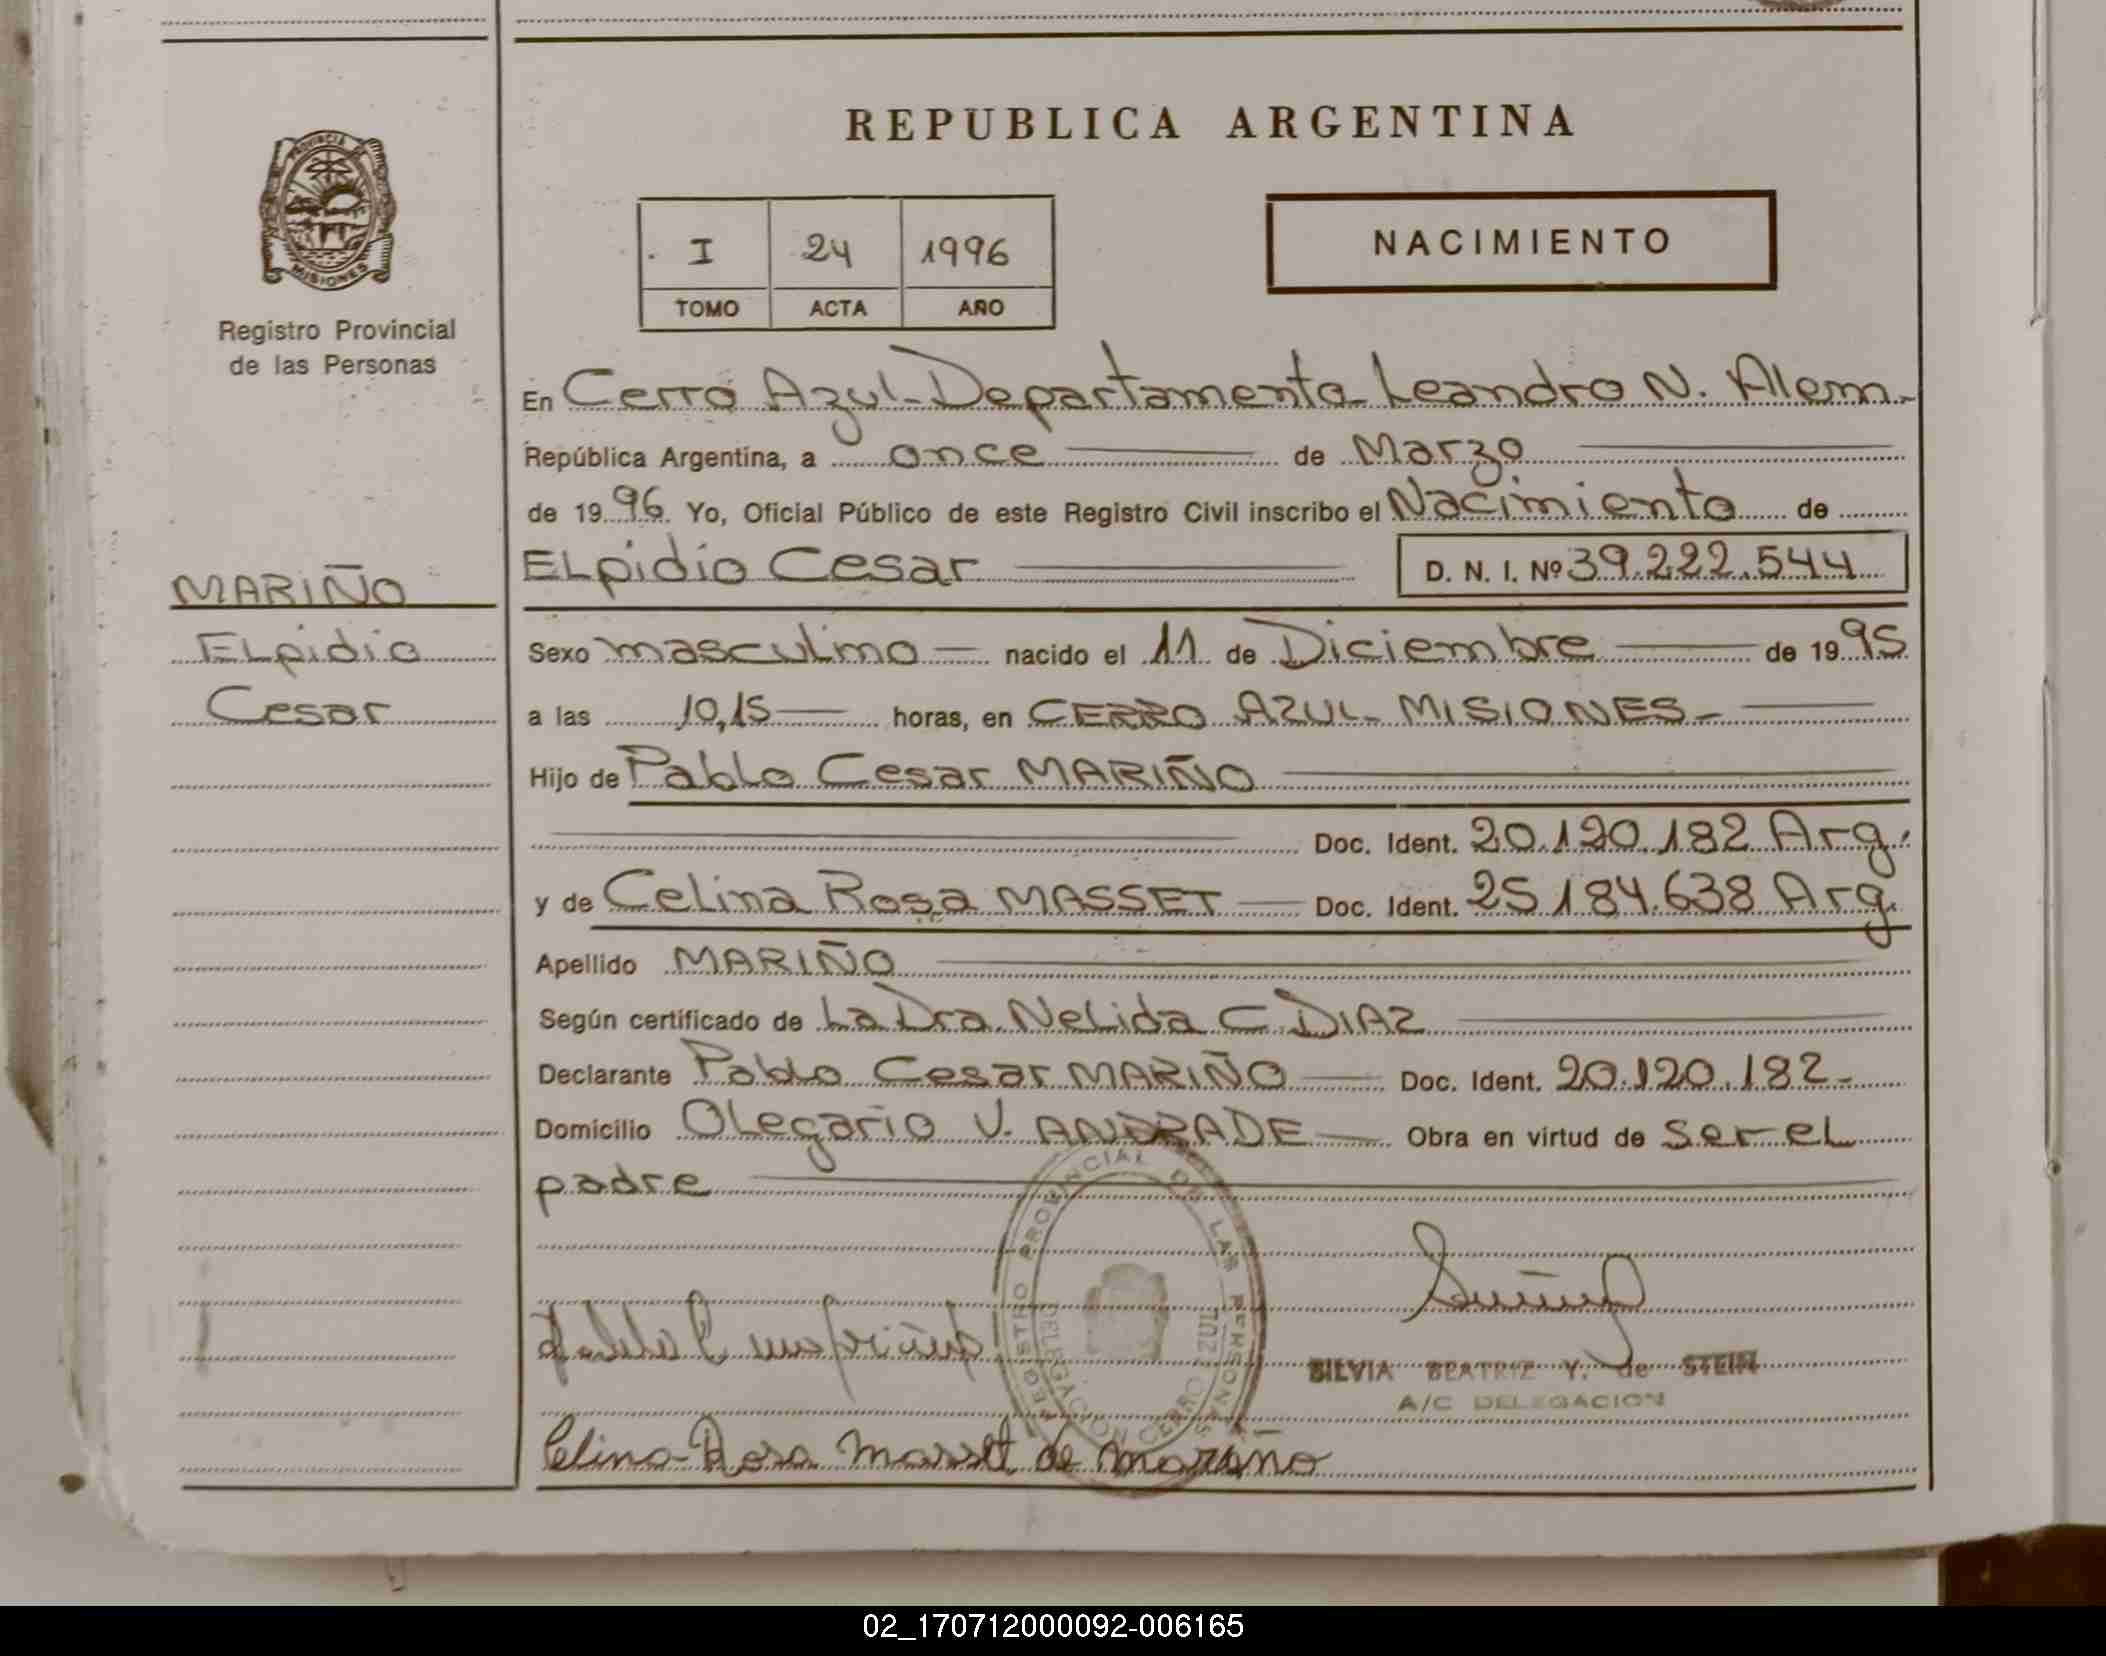 PROVINCIA DE
MISIONES
Registro Provincial
de las Personas
MARIÑO
ELpidio
Cesar
REPUBLICA ARGENTINA
I 24 1996
TOMO ACTA AÑO
NACIMIENTO
En Cerro Azul-Departamento Leandro N. Alem-
República Argentina, a once de Marzo
de 1996. Yo, Oficial Público de este Registro Civil inscribo el Nacimiento de
ELpidio Cesar D. N. I. Nº 39.222.544
Sexo masculino nacido el 11 de Diciembre de 1995
a las 10,15 horas, en CERRO AZUL- MISIONES-
Hijo de Pablo Cesar MARIÑO
Doc. Ident. 20.120.182 Arg.
y de Celina Rosa MASSET Doc. Ident. 25.184.638 Arg.
Apellido MARIÑO
Según certificado de La Dra. NeLida C. DIAZ
Declarante Pablo Cesar MARIÑO Doc. Ident. 20.120.182-
Domicilio OLegario V. ANDRADE Obra en virtud de ser eL
padre
REGISTRO PROVINCIAL DE LAS PERSONAS
DELEGACION CERRO AZUL
SILVIA BEATRIZ Y. de STEIN
A/C DELEGACION
Celina Rosa Masset de Mariño
02_170712000092-006165